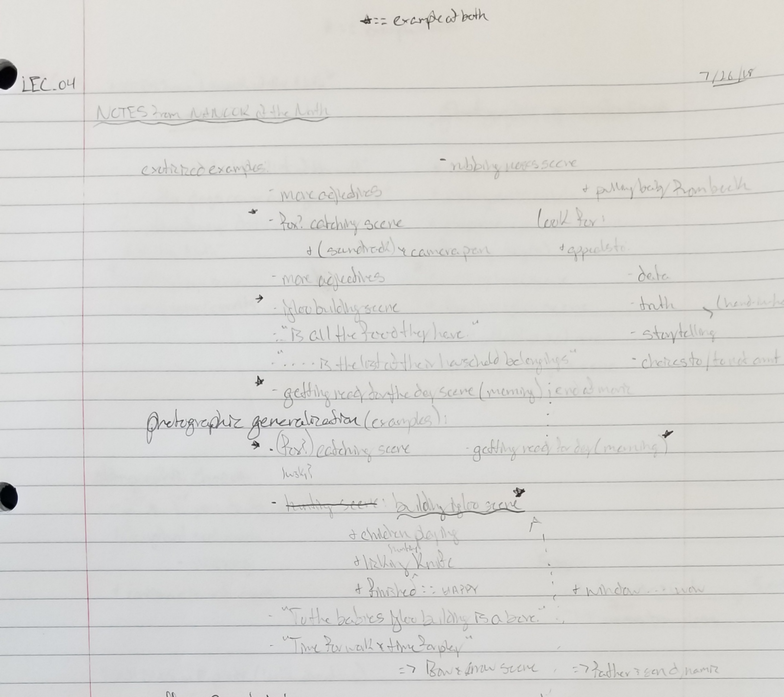 ★ == example of both
LEC_04
7/26/18
NOTES from NANOOK of the North
exoticized examples - rubbing noses scene
- more adjectives + pulling baby from
★ - fox? catching scene look for:
+ ( ) + camera pan
- more adjectives - data
★ - igloo building scene - truth
- "Is all the food they have" - storytelling
- "..... is the last of their household belongings" - choices to / to not
★ - getting ready for the day scene (morning)
photographic generalization (examples):
★ - (fox?) catching scene - getting ready for day (morning) ★
- hunting scene: building igloo scene ★
+ children playing
+ knife
+ finished :: HAPPY + window ... snow
- "To the babies igloo building is above."
- "Time for walk + time for play"
=> Bow + arrow scene => father + son dynamic